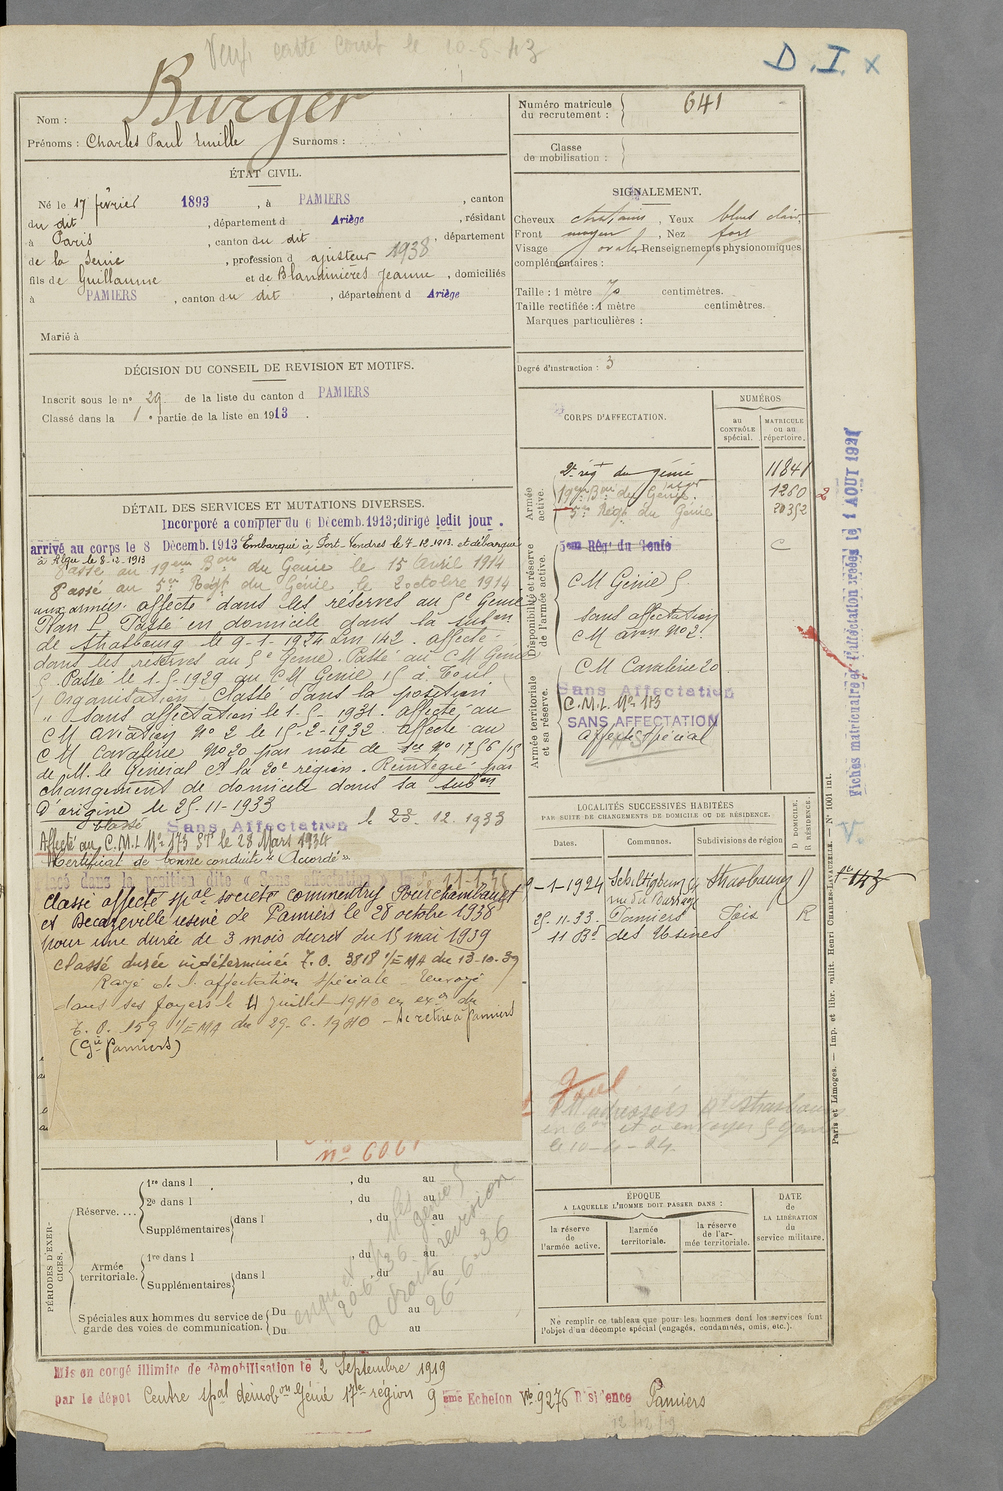 D. I. x
Burger
Nom :
Prénoms : Charles Paul Emille Surnoms :
Numéro matricule
du recrutement : 641
Classe
de mobilisation :
ÉTAT CIVIL.
Né le 17 février 1893, à PAMIERS, canton
du dit, département d Ariège, résidant
à Paris, canton du dit, département
de la Seine, profession d ajusteur 1938
fils de Guillaume et de Blandinières Jeanne, domiciliés
à PAMIERS, canton du dit, département d Ariège
Marié à
SIGNALEMENT.
Cheveux chatains, Yeux bleus clairs
Front moyen, Nez fort
Visage ovale Renseignements physionomiques
complémentaires :
Taille : 1 mètre 70 centimètres.
Taille rectifiée : 1 mètre centimètres.
Marques particulières :
Degré d'instruction : 3
DÉCISION DU CONSEIL DE REVISION ET MOTIFS.
Inscrit sous le n° 29 de la liste du canton d PAMIERS
Classé dans la 1e partie de la liste en 1913.
DÉTAIL DES SERVICES ET MUTATIONS DIVERSES.
Incorporé a compter du 6 Décemb. 1913; dirigé ledit jour.
arrivé au corps le 8 Décemb. 1913 Embarqué à Port-Vendres le 7-12-1913 et débarqué
à Alger le 8-12-1913
Passé au 19eme Bon du Génie le 15 Avril 1914
Passé au 5em Régt du Génie le 2 octobre 1914
aux armées. affecté dans les réserves au 5e Génie
Plan L Passé en domicile dans la subon
de Strasbourg le 9-1-1924 affecté
dans les réserves au 5e Génie. Passé au CM Génie
5. Passé le 1-5-1929 au CM Génie 15 à Toul
Organisation. Classé dans la position
" sans affectation le 1-5-1931. affecté au
CM aviation No 2 le 15-2-1932. affecté au
CM Cavalerie No 20 par note de
de M. le Général Ct la 20e région. Réintégré par
changement de domicile dans sa subon
d'origine le 25-11-1933
Classé Sans Affectation le 23. 12. 1933
Affecté au C.M.L No 173 ST le 28 Mars 1934
Certificat de bonne conduite "Accordé"
Classé affecté spal société commentry Fourchambault
et Decazeville usine de Pamiers le 28 octobre 1938
pour une durée de 3 mois decret du 15 mai 1939
Classé durée indéterminée T.O. 3818 1/EMA du 13-10-39
Rayé de l'affectation spéciale. Renvoyé
dans ses foyers le 4 juillet 1940 en exon du
T.O. 159 1/EMA du 29.6.1940 - Se retire à Pamiers
(Gie Pamiers)
CORPS D'AFFECTATION.
NUMÉROS
au
CONTRÔLE
spécial.
MATRICULE
ou au
répertoire.
Armée
active.
2e régt du génie 11841
19eme Bon du Génie. 1260
5em Régt du Génie 20352
Disponibilité et réserve
de l'armée active.
5eme Régt du Génie
CM Génie 5
Sans affectation
CM avon No 2
Armée territoriale
et sa réserve.
CM Cavalerie 20
Sans Affectation
C.M.L. No 173
SANS AFFECTATION
affecté spécial
LOCALITÉS SUCCESSIVES HABITÉES
PAR SUITE DE CHANGEMENTS DE DOMICILE OU DE RÉSIDENCE.
Dates.
Communes.
Subdivisions de région
D. DOMICILE.
R. RÉSIDENCE.
9-1-1924 Schiltigheim Strasbourg D
25.11.33. Pamiers Foix R
11 Bd des Usines
Toul
le 10-4-24.
no 6061
PÉRIODES D'EXERCICES.
Réserve....
1re dans l , du au
2e dans l , du au
Supplémentaires dans l , du au
Armée
territoriale.
1re dans l , du au
Supplémentaires dans l , du au
Spéciales aux hommes du service de
garde des voies de communication.
Du au
Du au
20-6-36
a droit revision
26-6-36
ÉPOQUE
A LAQUELLE L'HOMME DOIT PASSER DANS :
la réserve
de
l'armée active.
l'armée
territoriale.
la réserve
de l'armée territoriale.
DATE
de
LA LIBÉRATION
du
service militaire.
Ne remplir ce tableau que pour les hommes dont les services font
l'objet d'un décompte spécial (engagés, condamnés, omis, etc.).
Mis en congé illimité de démobilisation le 2 Septembre 1919
par le dépôt Centre spal démobon Génie 17e région 9 eme Echelon No 9276 Résidence Pamiers
Paris et Limoges. — Imp. et libr. milit. Henri CHARLES-LAVAUZELLE. — N° 1001 int.